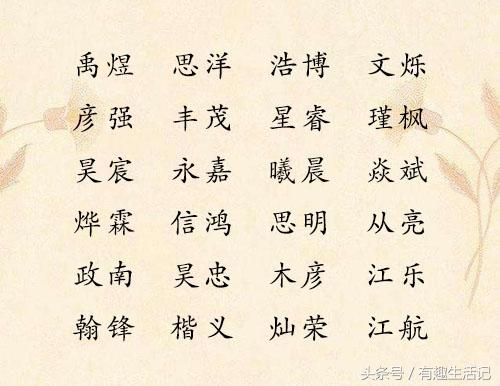 禹煜 思洋 浩博 文烁
彦强 丰茂 星睿 瑾枫
昊宸 永嘉 曦晨 焱斌
烨霖 信鸿 思明 从亮
政南 昊忠 木彦 江乐
翰锋 楷义 灿荣 江航
头条号 / 有趣生活记